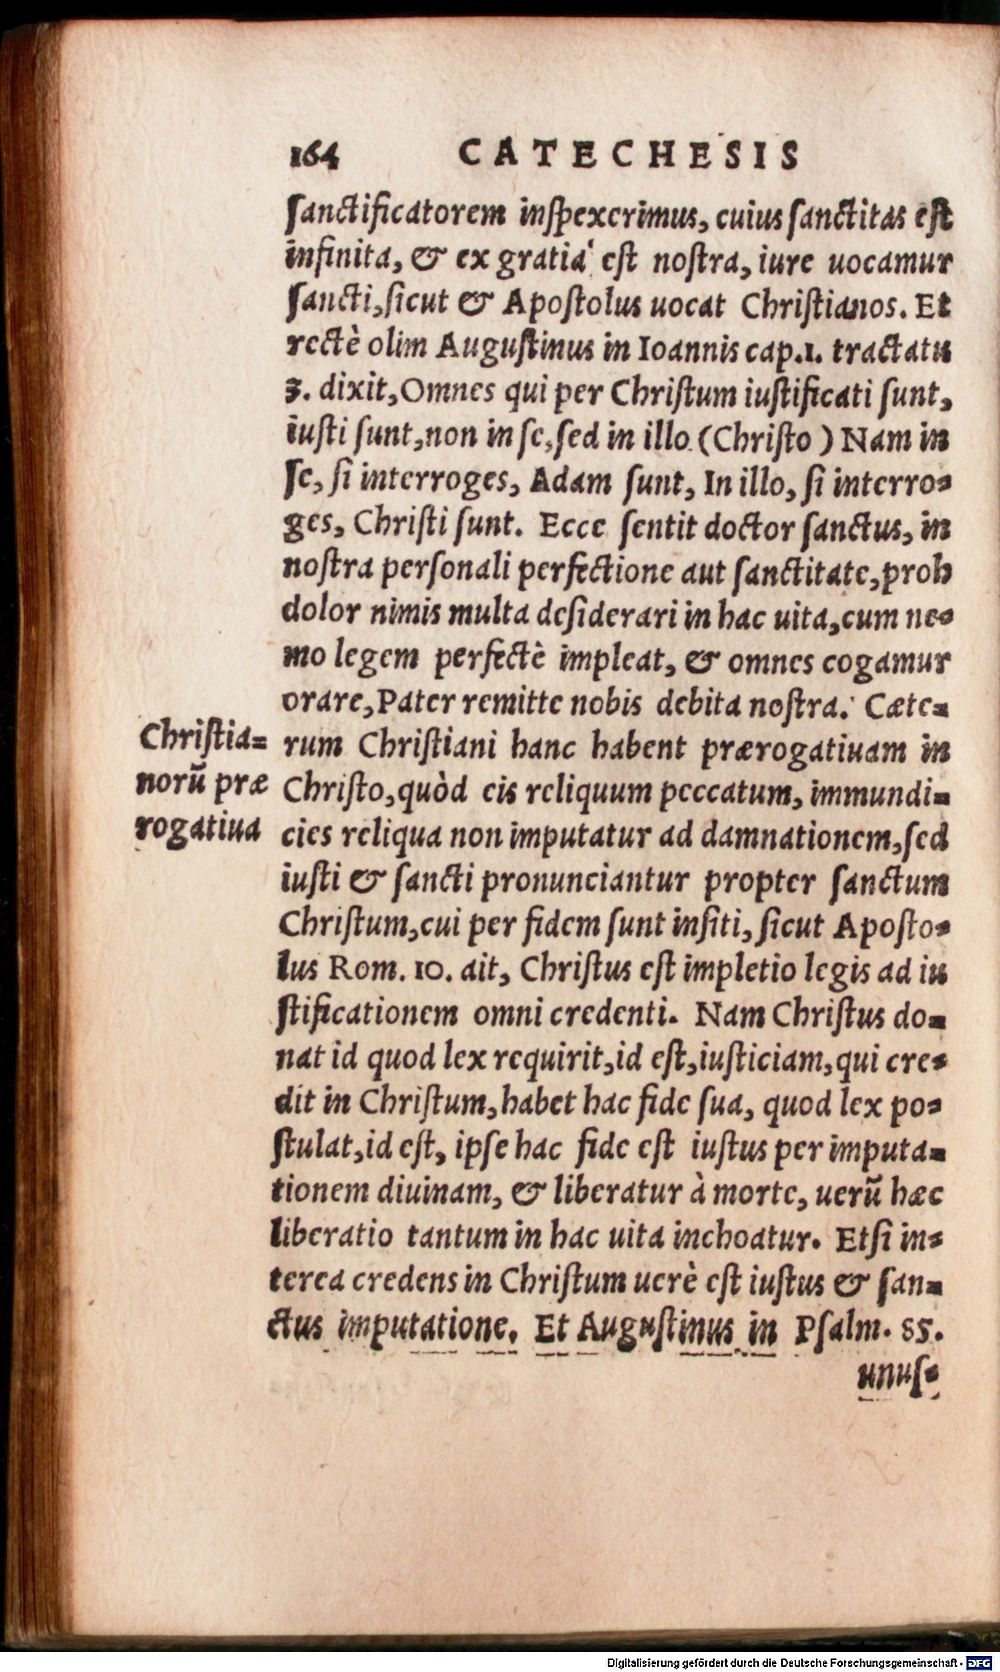 164 CATECHESIS
ſanctificatorem inſpexerimus, cuius ſanctitas eſt
infinita, & ex gratia eſt noſtra, iure uocamur
ſancti, ſicut & Apoſtolus uocat Chriſtianos. Et
rectè olim Auguſtinus in Ioannis cap.1. tractatu
3. dixit, Omnes qui per Chriſtum iuſtificati ſunt,
iuſti ſunt, non in ſe, ſed in illo (Chriſto) Nam in
ſe, ſi interroges, Adam ſunt, In illo, ſi interro-
ges, Chriſti ſunt. Ecce ſentit doctor ſanctus, in
noſtra perſonali perfectione aut ſanctitate, proh
dolor nimis multa deſiderari in hac uita, cum ne-
mo legem perfectè impleat, & omnes cogamur
orare, Pater remitte nobis debita noſtra. Cæte-
rum Chriſtiani hanc habent prærogatiuam in
Chriſto, quòd eis reliquum peccatum, immundi-
cies reliqua non imputatur ad damnationem, ſed
iuſti & ſancti pronunciantur propter ſanctum
Chriſtum, cui per fidem ſunt inſiti, ſicut Apoſto-
lus Rom. 10. ait, Chriſtus eſt impletio legis ad iu
ſtificationem omni credenti. Nam Chriſtus do-
nat id quod lex requirit, id eſt, iuſticiam, qui cre-
dit in Chriſtum, habet hac fide ſua, quod lex po-
ſtulat, id eſt, ipſe hac fide eſt iuſtus per imputa-
tionem diuinam, & liberatur à morte, uerũ hæc
liberatio tantum in hac uita inchoatur. Etſi in-
terea credens in Chriſtum uerè eſt iuſtus & ſan-
ctus imputatione. Et Auguſtinus in Pſalm. 85.
unuſ-
Chriſtia-
norũ præ
rogatiua
Digitalisierung gefördert durch die Deutsche Forschungsgemeinschaft - DFG